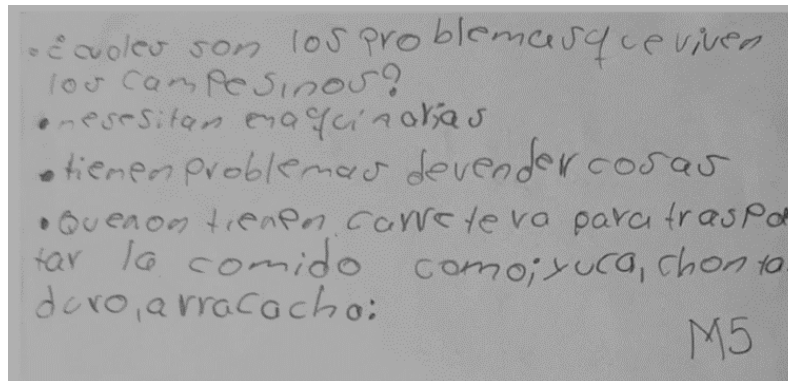 • ¿cuoles son los problemas que viven
los campesinos?
• nesesitan maqcinarias
• tienen problemas de vender cosas
• Que non tienen carretera para traspo
tar la comido como; yuca, chonta
duro, arracacha:
M5